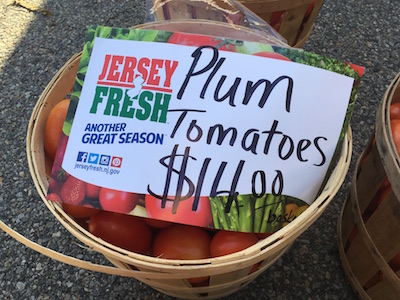 JERSEY
FRESH
ANOTHER
GREAT SEASON
jerseyfresh.nj.gov
Plum
Tomatoes
$14.00